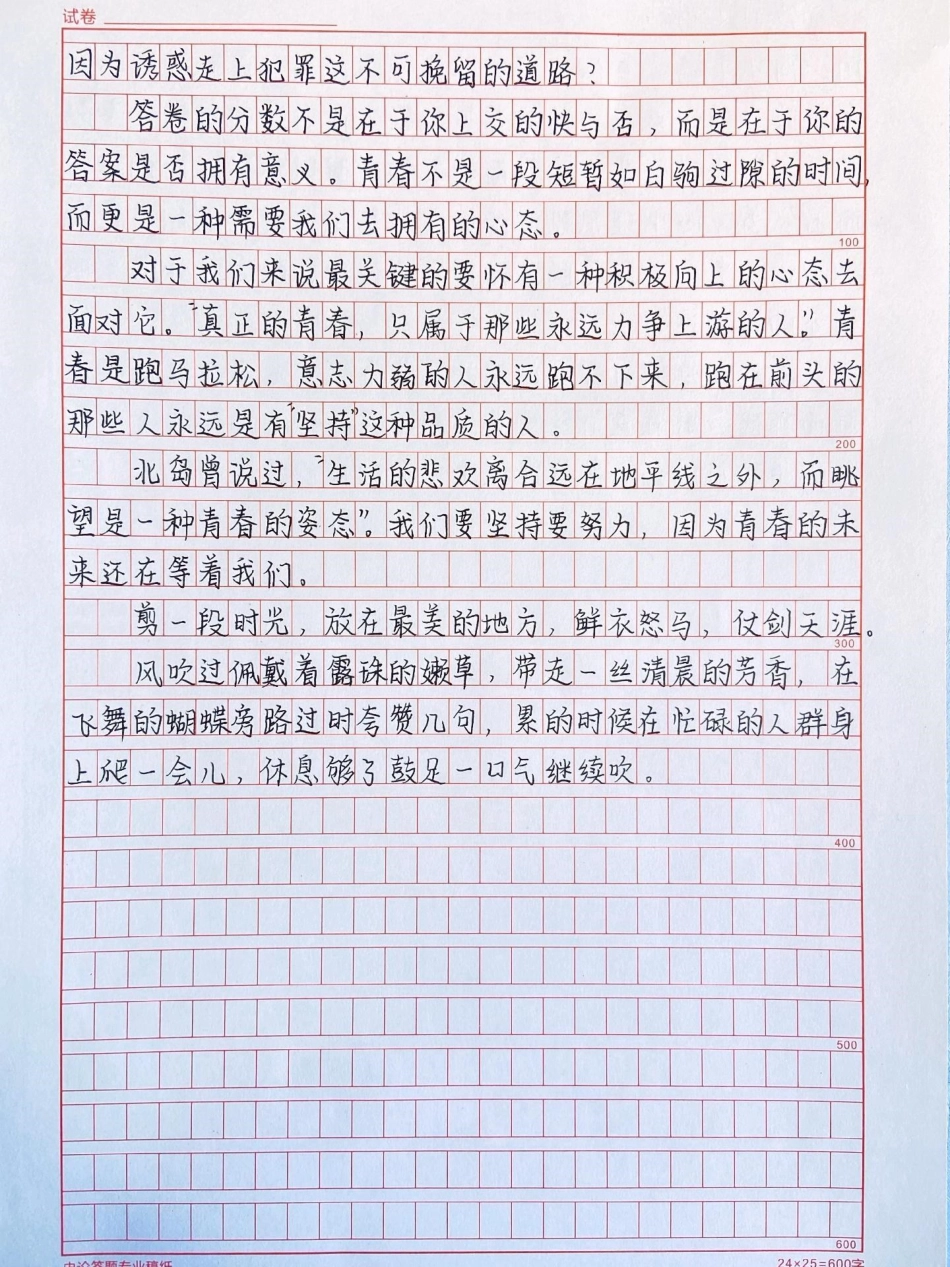 试卷
因为诱惑走上犯罪这不可挽留的道路?
答卷的分数不是在于你上交的快与否,而是在于你的
答案是否拥有意义。青春不是一段短暂如白驹过隙的时间,
而更是一种需要我们去拥有的心态。
100
对于我们来说最关键的要怀有一种积极向上的心态去
面对它。“真正的青春,只属于那些永远力争上游的人。”青
春是跑马拉松,意志力弱的人永远跑不下来,跑在前头的
那些人永远是有“坚持”这种品质的人。
200
北岛曾说过,“生活的悲欢离合远在地平线之外,而眺
望是一种青春的姿态”。我们要坚持要努力,因为青春的未
来还在等着我们。
剪一段时光,放在最美的地方,鲜衣怒马,仗剑天涯。
300
风吹过佩戴着露珠的嫩草,带走一丝清晨的芳香,在
飞舞的蝴蝶旁路过时夸赞几句,累的时候在忙碌的人群身
上爬一会儿,休息够了鼓足一口气继续吹。
400
500
600
申论答题专业稿纸
24×25=600字